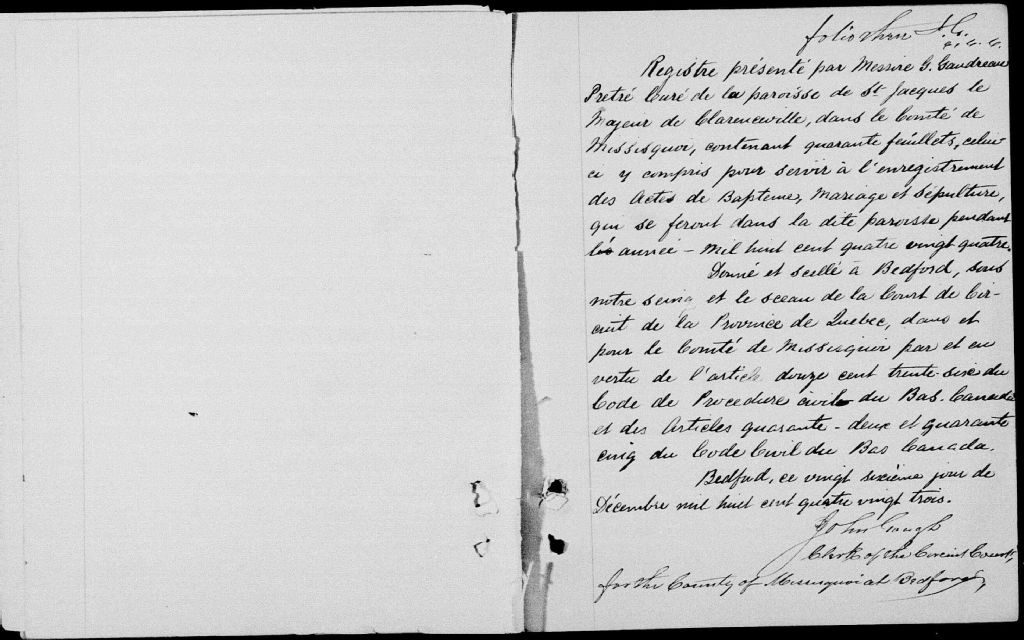 folio three J.G.
c.c.c.
Registre présenté par Messire G. Gaudreau
Pretré Curé de la paroisse de St Jacques le
Majeur de Clarenceville, dans le Comté de
Missisquoi, contenant quarante feuillets, celui-
ci y compris pour servir à l'enregistrement
des Actes de Bapteme, Mariage et Sépulture,
qui se feront dans la dite paroisse pendant
année - Mil huit cent quatre vingt quatre.
Donné et scellé à Bedford, sous
notre seing et le sceau de la Court de Cir-
cuit de la Province de Quebec, dans et
pour le Comté de Missisquoi par et en
vertu de l'article douze cent trente-six du
Code de Procedure civile du Bas-Canada
et des Articles quarante-deux et quarante
cinq du Code Civil du Bas Canada.
Bedford, ce vingt sixième jour de
Décembre mil huit cent quatre vingt trois.
John Gough
Clerk of the Circuit Court,
for the County of Missisquoi at Bedford,